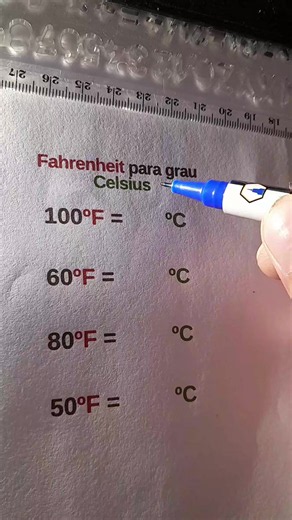 27 26 25 24 23 22 21 20 19 18
Fahrenheit para grau
Celsius =
100ºF = ºC
60ºF = ºC
80ºF = ºC
50ºF = ºC